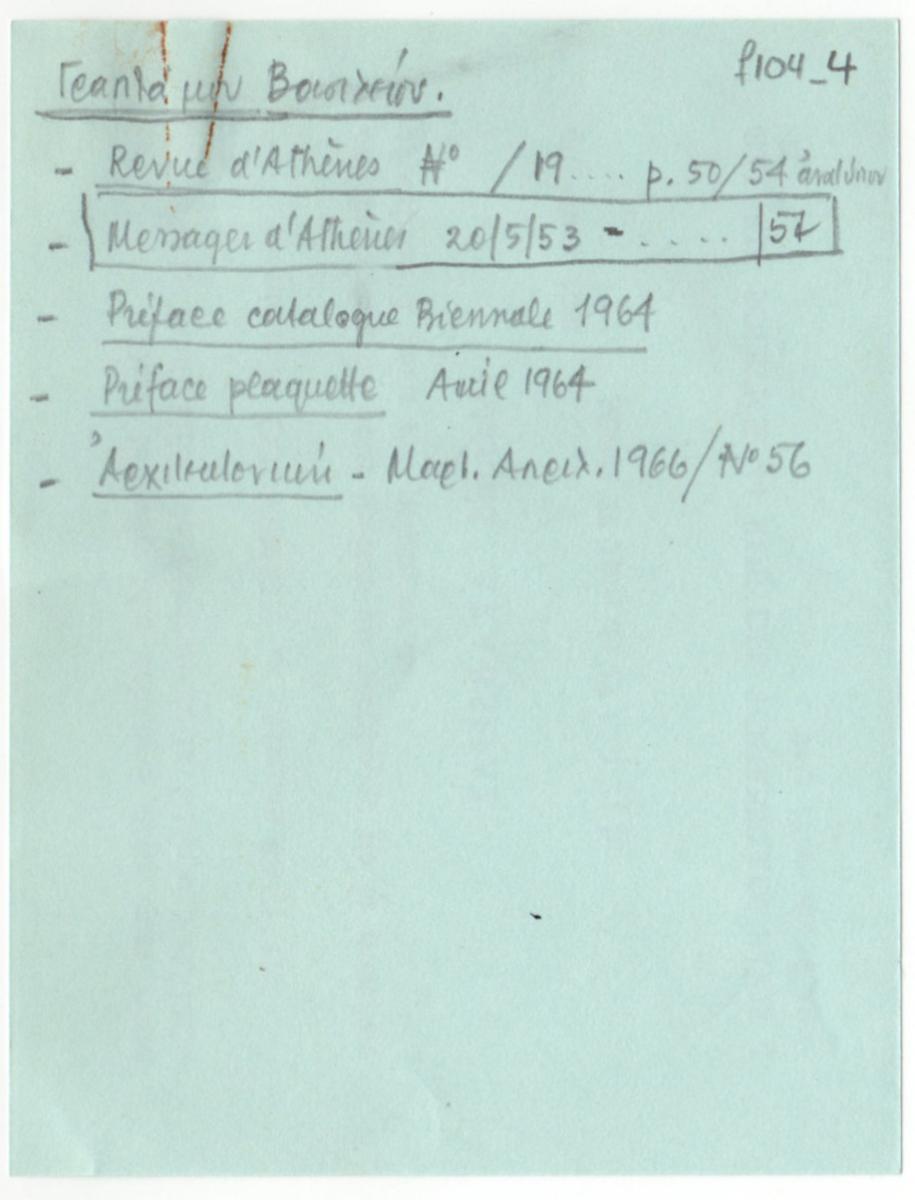 f104_4
Γραπτά μου Βασιλείου.
- Revue d'Athènes N° /19.... p. 50/54 ἀνάτυπον
- Messager d'Athènes 20/5/53 - ..... |57
- Préface catalogue Biennale 1964
- Préface plaquette Avril 1964
- Ἀρχιτεκτονική - Μαρτ. Απριλ. 1966/N° 56